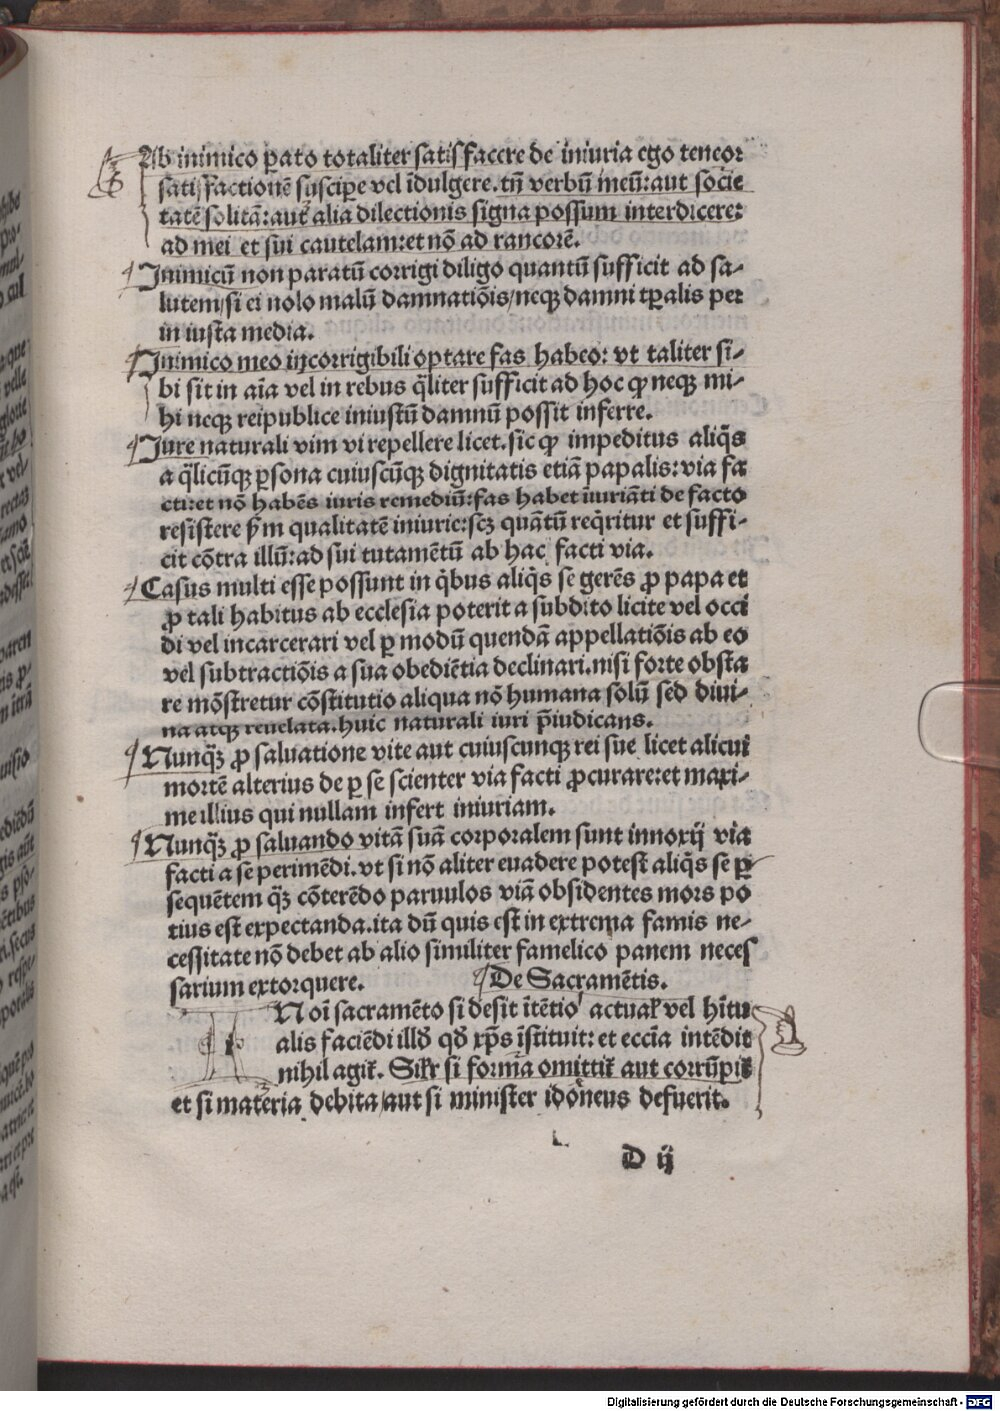 Ab inimico ꝑato totaliter satisfacere de iniuria ego teneor
satisfactionē suscipe vel īdulgere. tñ verbū meū: aut socie
tatē solitā: aut alia dilectionis signa possum interdicere:
ad mei et sui cautelam: et nō ad rancorē.
Inimicū non paratū corrigi diligo quantū sufficit ad sa⸗
lutem/si ei nolo malū damnatiōis/neqꝫ damni tꝑalis per
in iusta media.
Inimico meo incorrigibili optare fas habeo: vt taliter si⸗
bi sit in aīa vel in rebus q̄liter sufficit ad hoc ꝙ neqꝫ mi⸗
hi neqꝫ reipublice iniustū damnū possit inferre.
Iure naturali vim vi repellere licet. sic ꝙ impeditus aliq̄s
a q̄licūqꝫ ꝑsona cuiuscūqꝫ dignitatis etiā papalis: via fa
cti: et nō habēs iuris remediū: fas habet iīuriāti de facto
resistere ẜm qualitatē iniurie: scꝫ quātū reqͥritur et suffi⸗
cit cōtra illū: ad sui tutamētū ab hac facti via.
Casus multi esse possunt in qͥbus aliqͥs se gerēs ꝓ papa et
ꝓ tali habitus ab ecclesia poterit a subdito licite vel occi
di vel incarcerari vel ꝑ modū quendā appellatiōis ab eo
vel subtractiōis a sua obediētia declinari. nisi forte obsta
re mōstretur cōstitutio aliqua nō humana solū sed diui⸗
na atqꝫ reuelata. huic naturali iuri p̄iudicans.
Nunqͣꝫ ꝓ saluatione vite aut cuiuscunqꝫ rei sue licet alicui
mortē alterius de ꝑ se scienter via facti ꝓcurare: et maxi⸗
me illius qui nullam infert iniuriam.
Nunqͣꝫ ꝓ saluando vitā suā corporalem sunt innoxij via
facti a se perimēdi. vt si nō aliter euadere potest aliqͥs se ꝑ
sequētem qͣꝫ cōterēdo paruulos viā obsidentes mors po
tius est expectanda. ita dū quis est in extrema famis ne⸗
cessitate nō debet ab alio similiter famelico panem neces
sarium extorquere. De Sacramētis.
Noī sacramēto si desit ītētio actual' vel hītu
alis faciēdi illđ qđ xp̄s īstituit: et eccīa intēdit
nihil agit̄. Sīlr si forma omittit̄ aut corrūpit̄
et si materia debita/aut si minister idoneus defuerit.
D ij
Digitalisierung gefördert durch die Deutsche Forschungsgemeinschaft - DFG